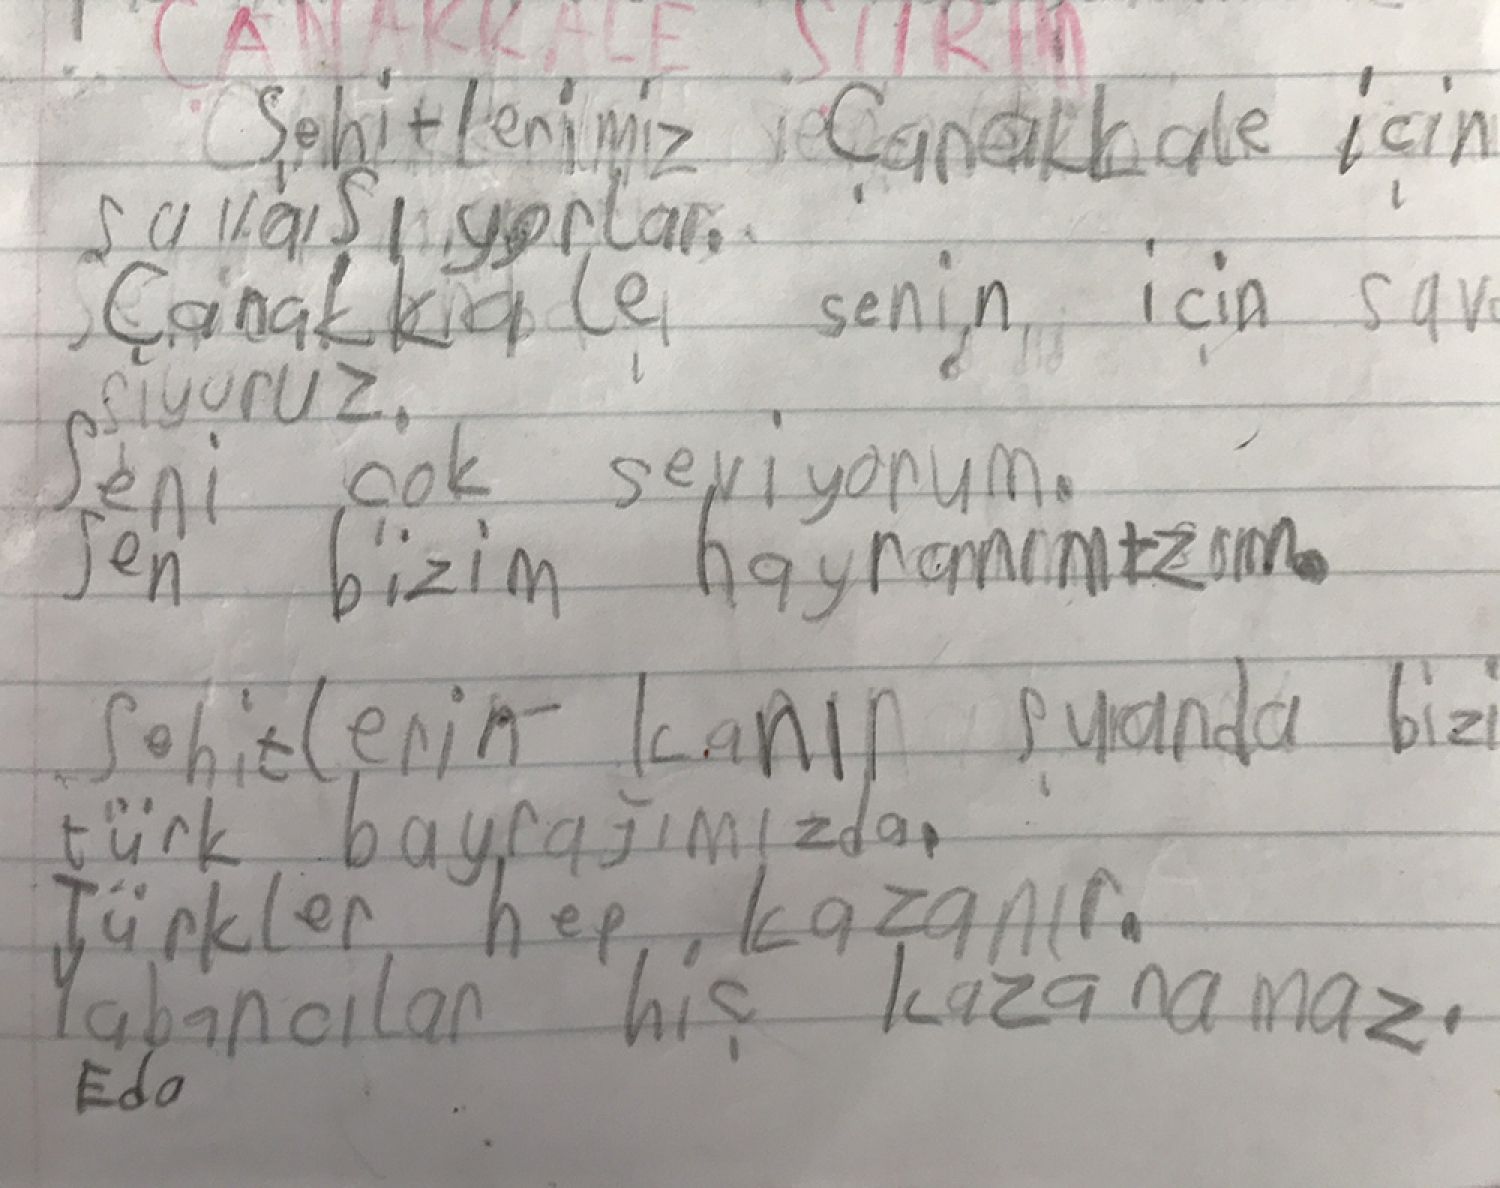 ÇANAKKALE ŞİİRİM
Şehitlerimiz Çanakkale için
savaşıyorlar.
Çanakkale senin için sava
şıyoruz.
Seni çok seviyorum.
Sen bizim
Şehitlerin kanın şuranda bizi
türk bayrağımızda.
Türkler hep kazanır.
Yabancılar hiç kazanamaz.
Eda